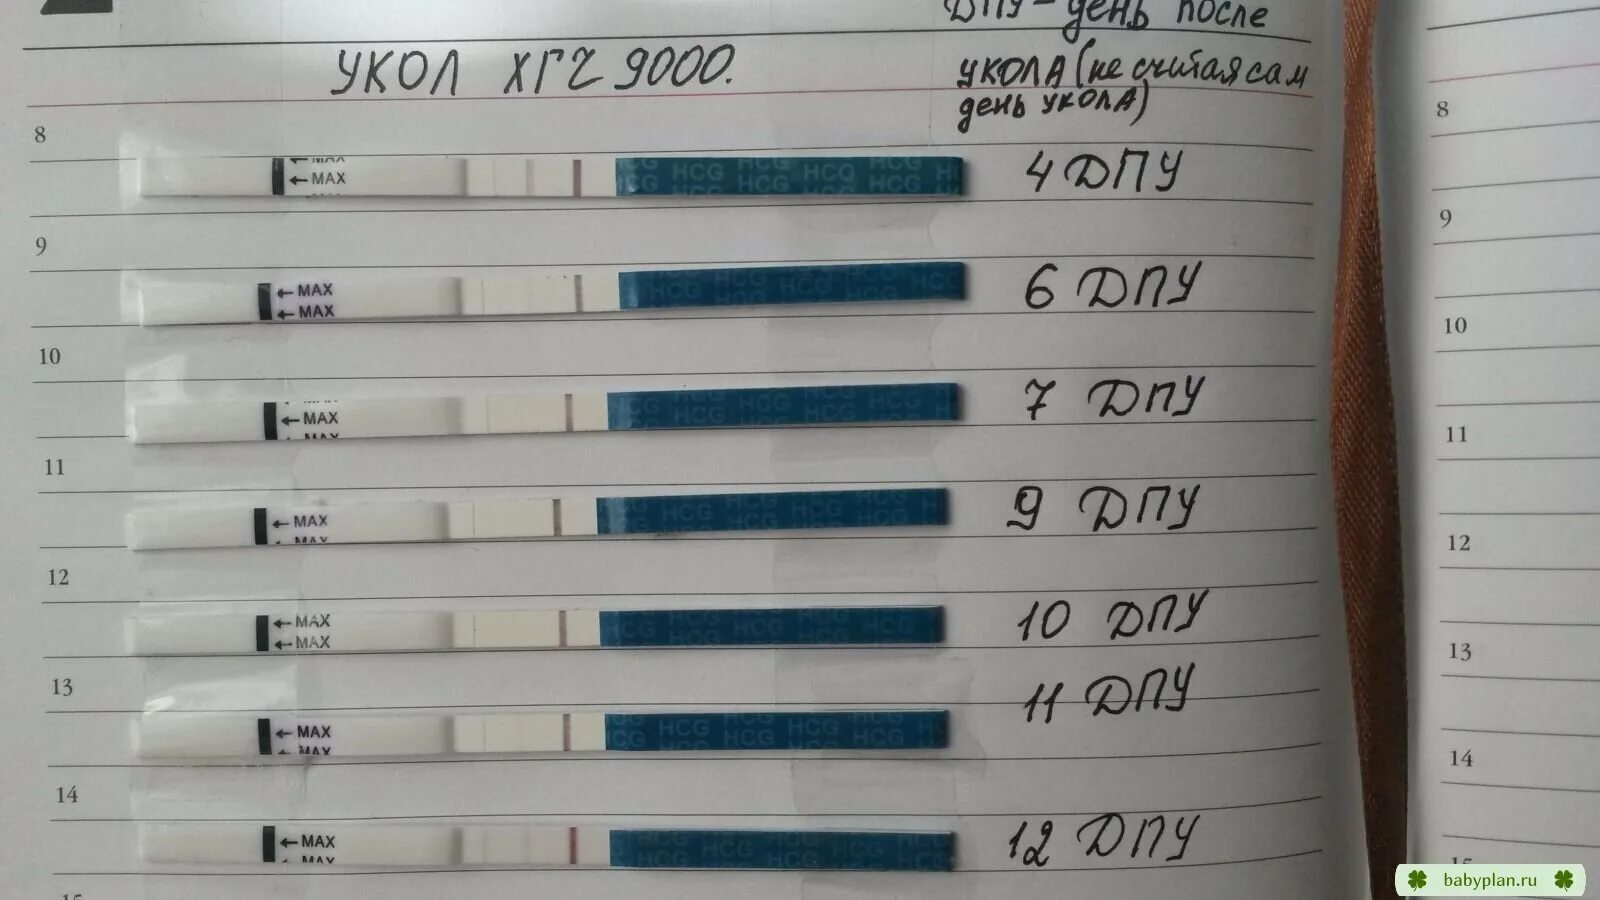 ДПУ - день после
УКОЛ ХГЧ 9000.
УКОЛА (не считая сам
день УКОЛА)
8
8
MAX
← MAX
HCG HCG HCG
HCG HCG HCG
4 ДПУ
9
9
← MAX
← MAX
6 ДПУ
10
10
← MAX
MAX
HCG HCG HCG
7 ДПУ
11
11
← MAX
MAX
HCG HCG HCG
9 ДПУ
12
12
← MAX
← MAX
HCG HCG HCG
10 ДПУ
13
13
← MAX
MAX
HCG HCG HCG
HCG HCG HCG
11 ДПУ
14
14
← MAX
MAX
HCG HCG HCG
12 ДПУ
15
15
babyplan.ru